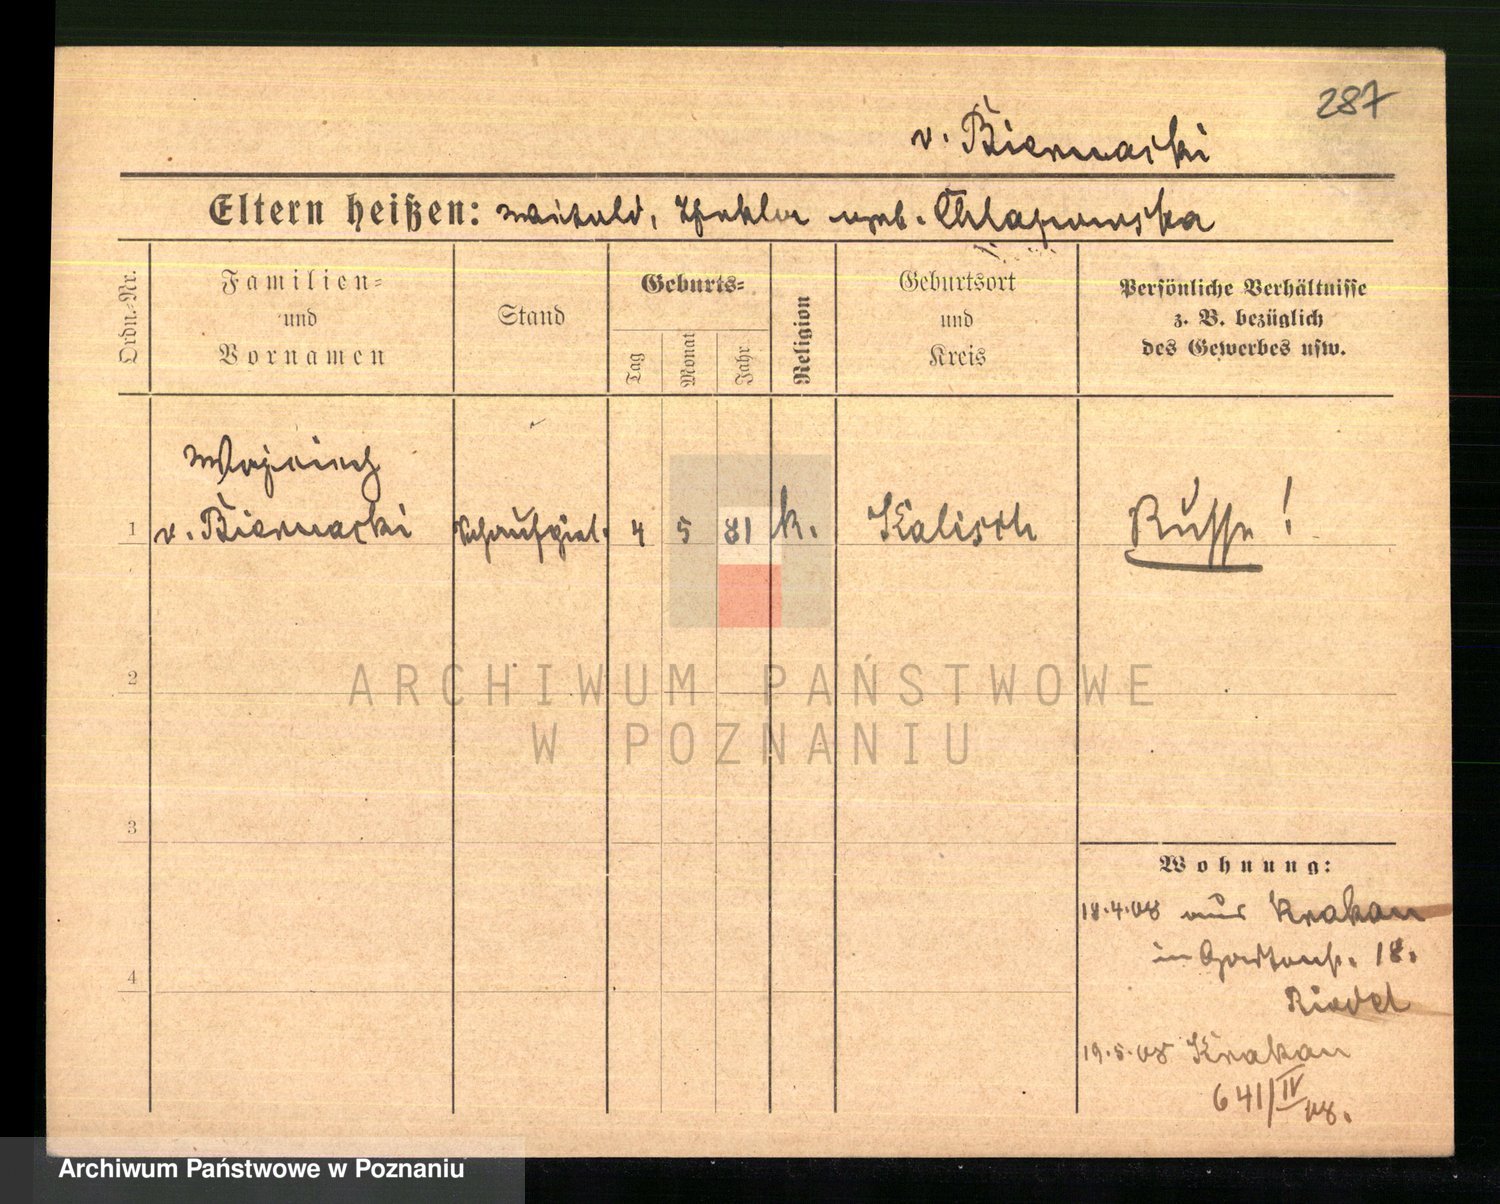 287
v. Biernacki
Eltern heißen: Witold, Thekla geb. Chlapowska
Ordn.-Nr.
Familien-
und
Vornamen
Stand
Geburts-
Tag
Monat
Jahr
Religion
Geburtsort
und
Kreis
Persönliche Verhältnisse
z. B. bezüglich
des Gewerbes usw.
Wojciech
1 v. Biernacki Schauspiel. 4 5 81 k. Kalisch Russe!
2
ARCHIWUM PAŃSTWOWE
W POZNANIU
3
Wohnung:
18.4.08 aus Krakau
4 in Gartenstr. 18.
Riedel
19.5.08 Krakau
641/IV 08.
Archiwum Państwowe w Poznaniu